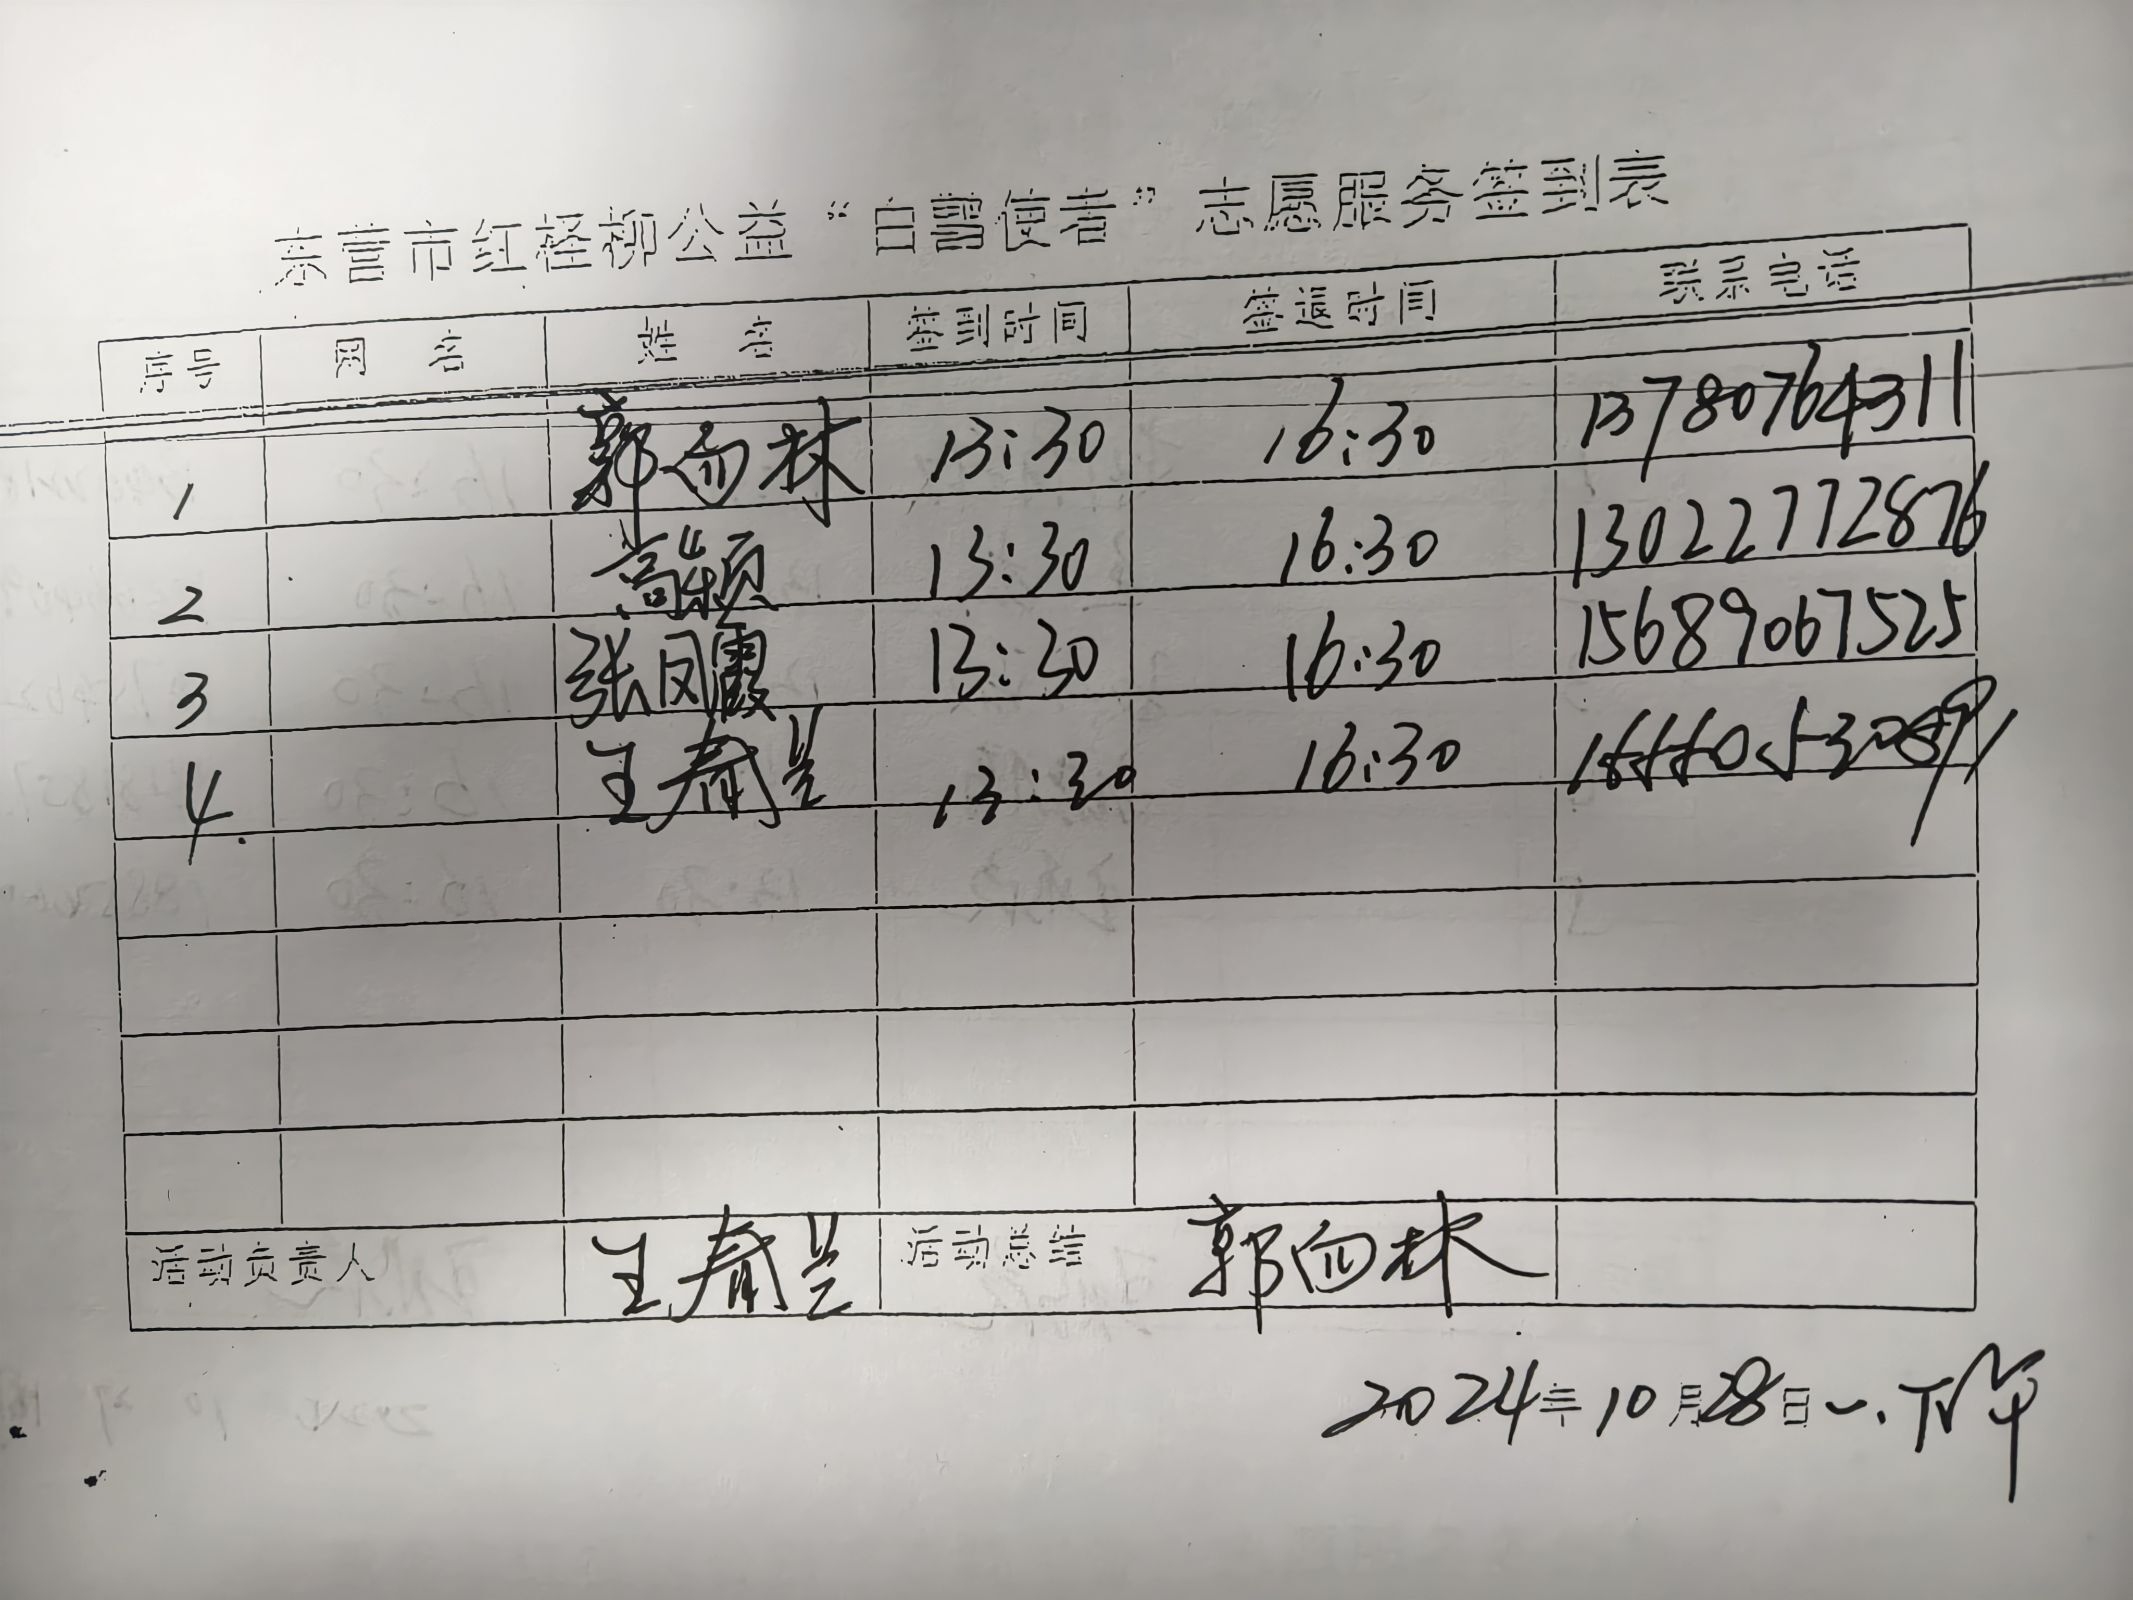 东营市红柽柳公益“白鹭使者”志愿服务签到表
序号 网名 姓名 签到时间 签退时间 联系电话
1 郭向林 13:30 16:30 13780764311
2 高频 13:30 16:30 13022772876
3 张凤霞 13:30 16:30 15689067525
4. 王春兰 13:30 16:30
活动负责人 王春兰 活动总结 郭向林
2024年10月28日一.下午